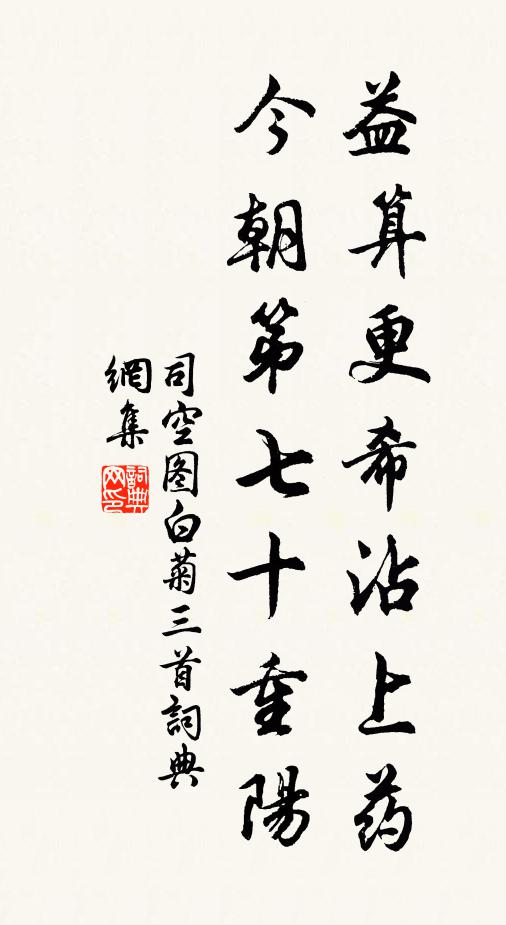 益算更希沾上药
今朝第七十重陽
司空图白菊三首詞典
網集
詞典網印